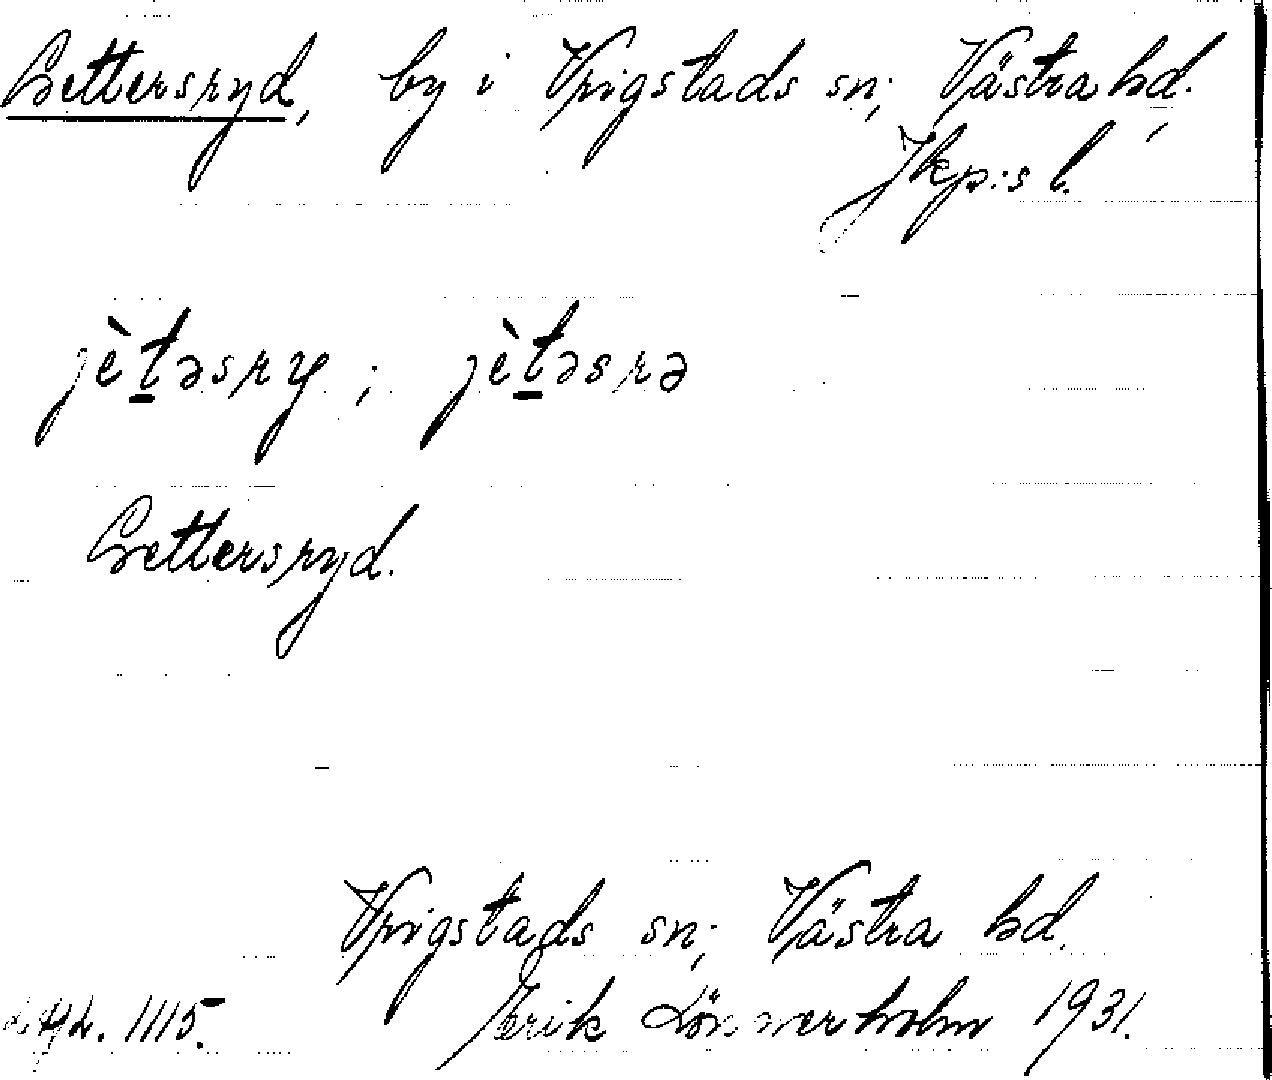 Gettersryd, by i Vrigstads sn; Västra hd.,
Jkp:s l.
jètəsry ; jètəsrə
Gettersryd.
Vrigstads sn; Västra hd.
Erik Lönnerholm 1931.
1115.